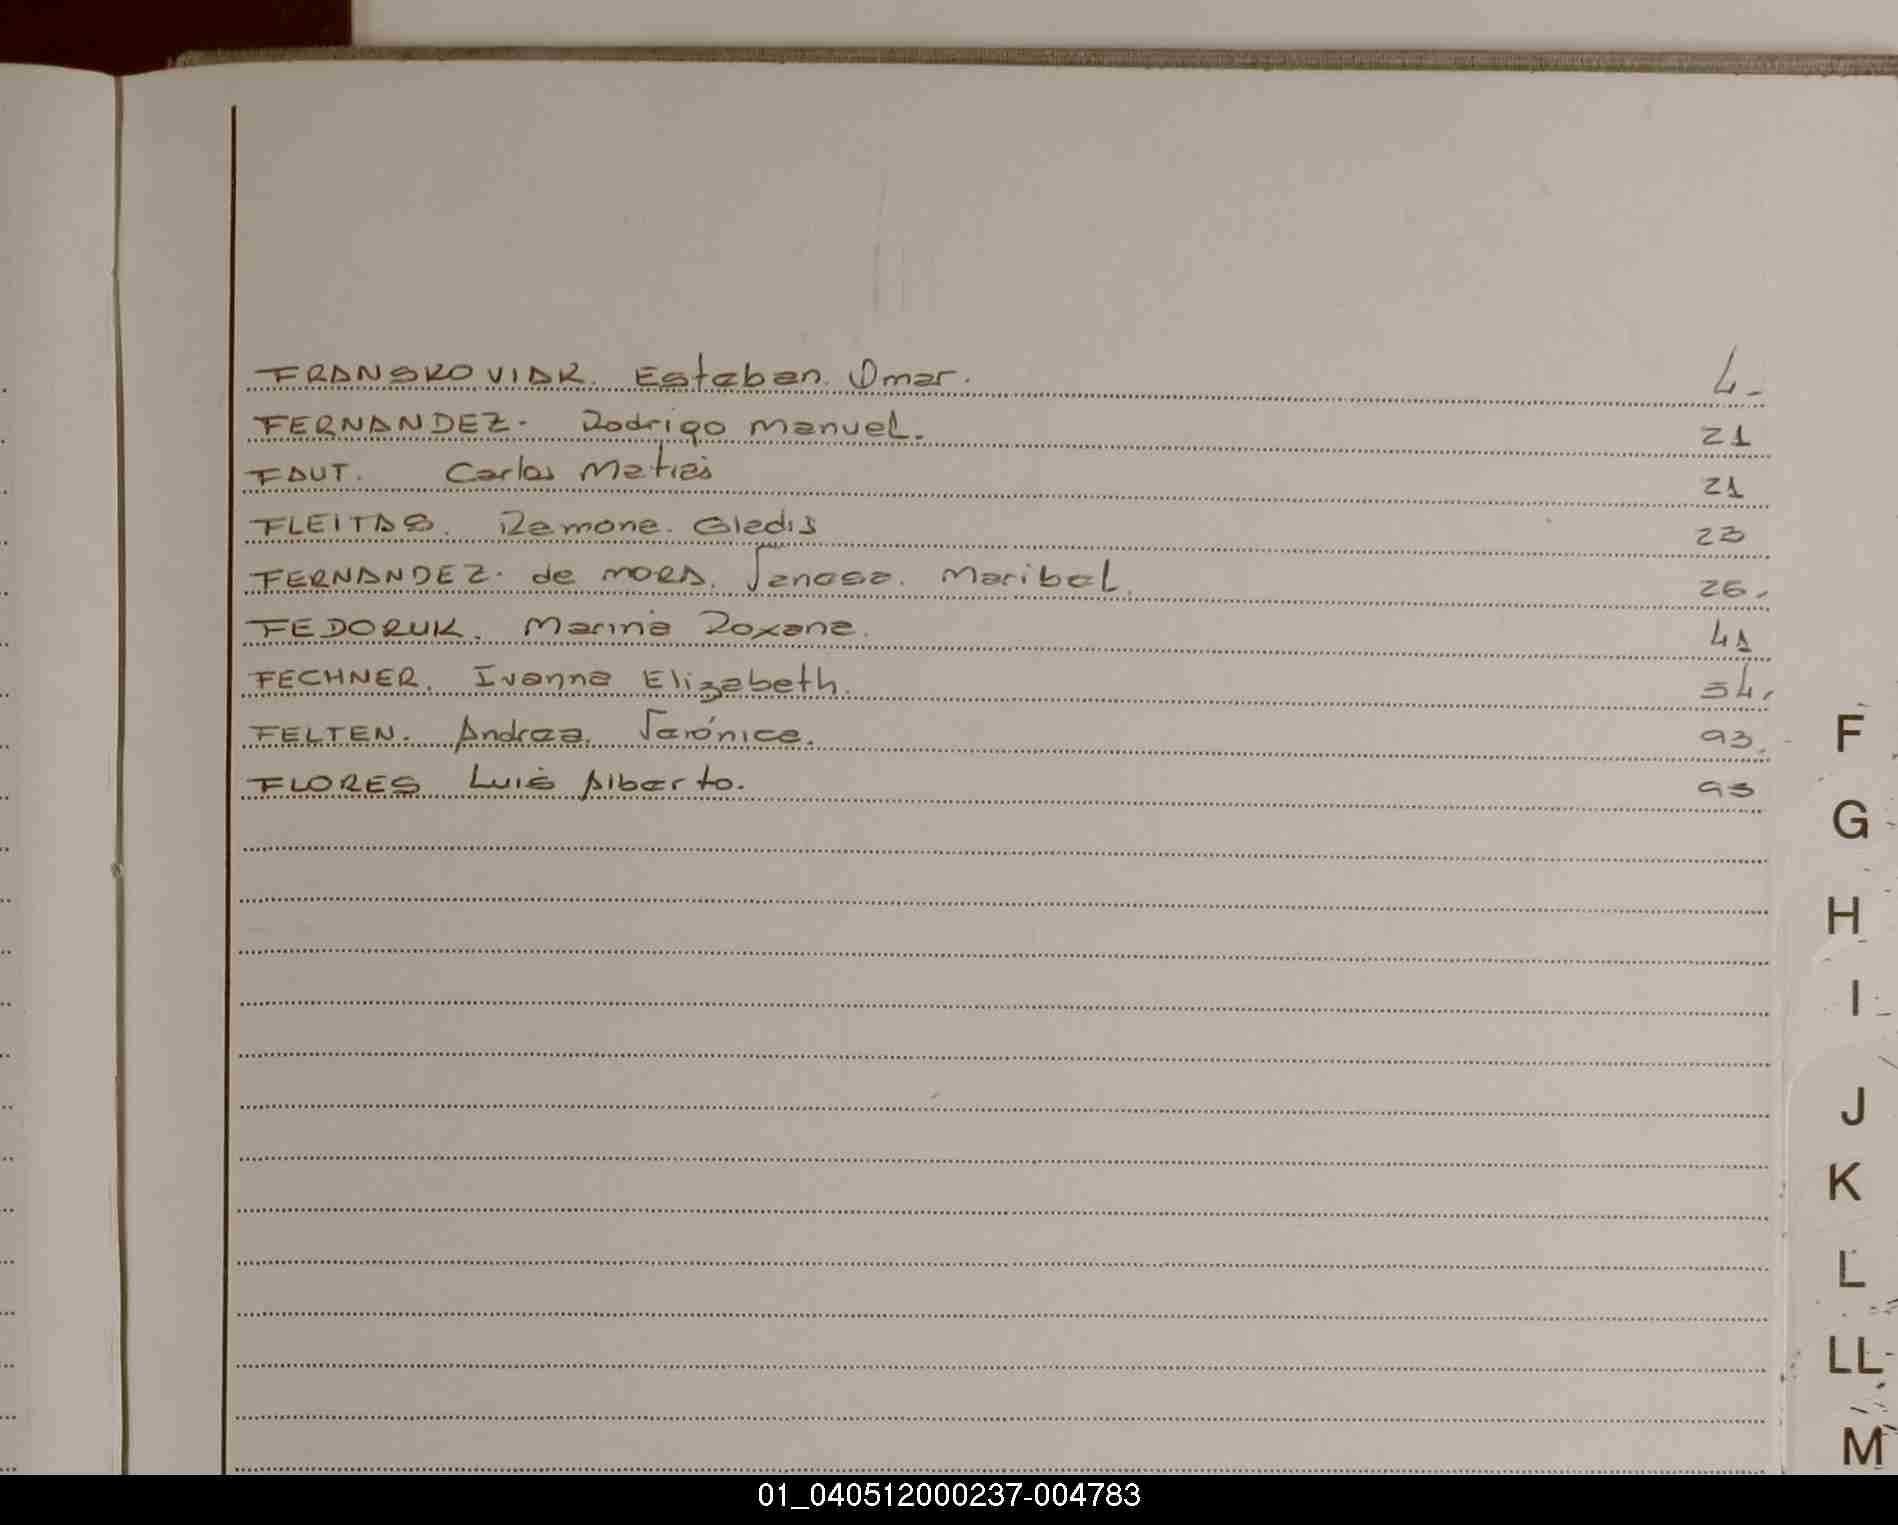 FRANSKOVIAK. Esteban. Omar. 4-
FERNANDEZ. Rodrigo Manuel. 21
FAUT. Carlos Matias 21
FLEITAS. Ramona. Gladis 23
FERNANDEZ. de MORA. Vanesa. Maribel. 26.
FEDORUK. Marina Roxana. 41
FECHNER. Ivanna Elizabeth. 54.
FELTEN. Andrea. Verónica. 93.
FLORES Luis Alberto. 93
F
G
H
I
J
K
L
LL
M
01_040512000237-004783